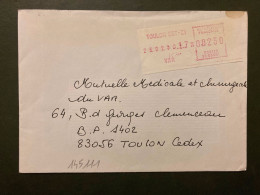 00250
Mutuelle Medicale et chirurgicale
du VAR
64, B.d georges clemenceau
B.P. 1402
83056 TOULON Cedex
145111